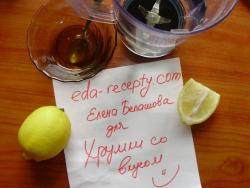 eda-recepty.com
Елена Белашова
для
Хрумки со
вкусом